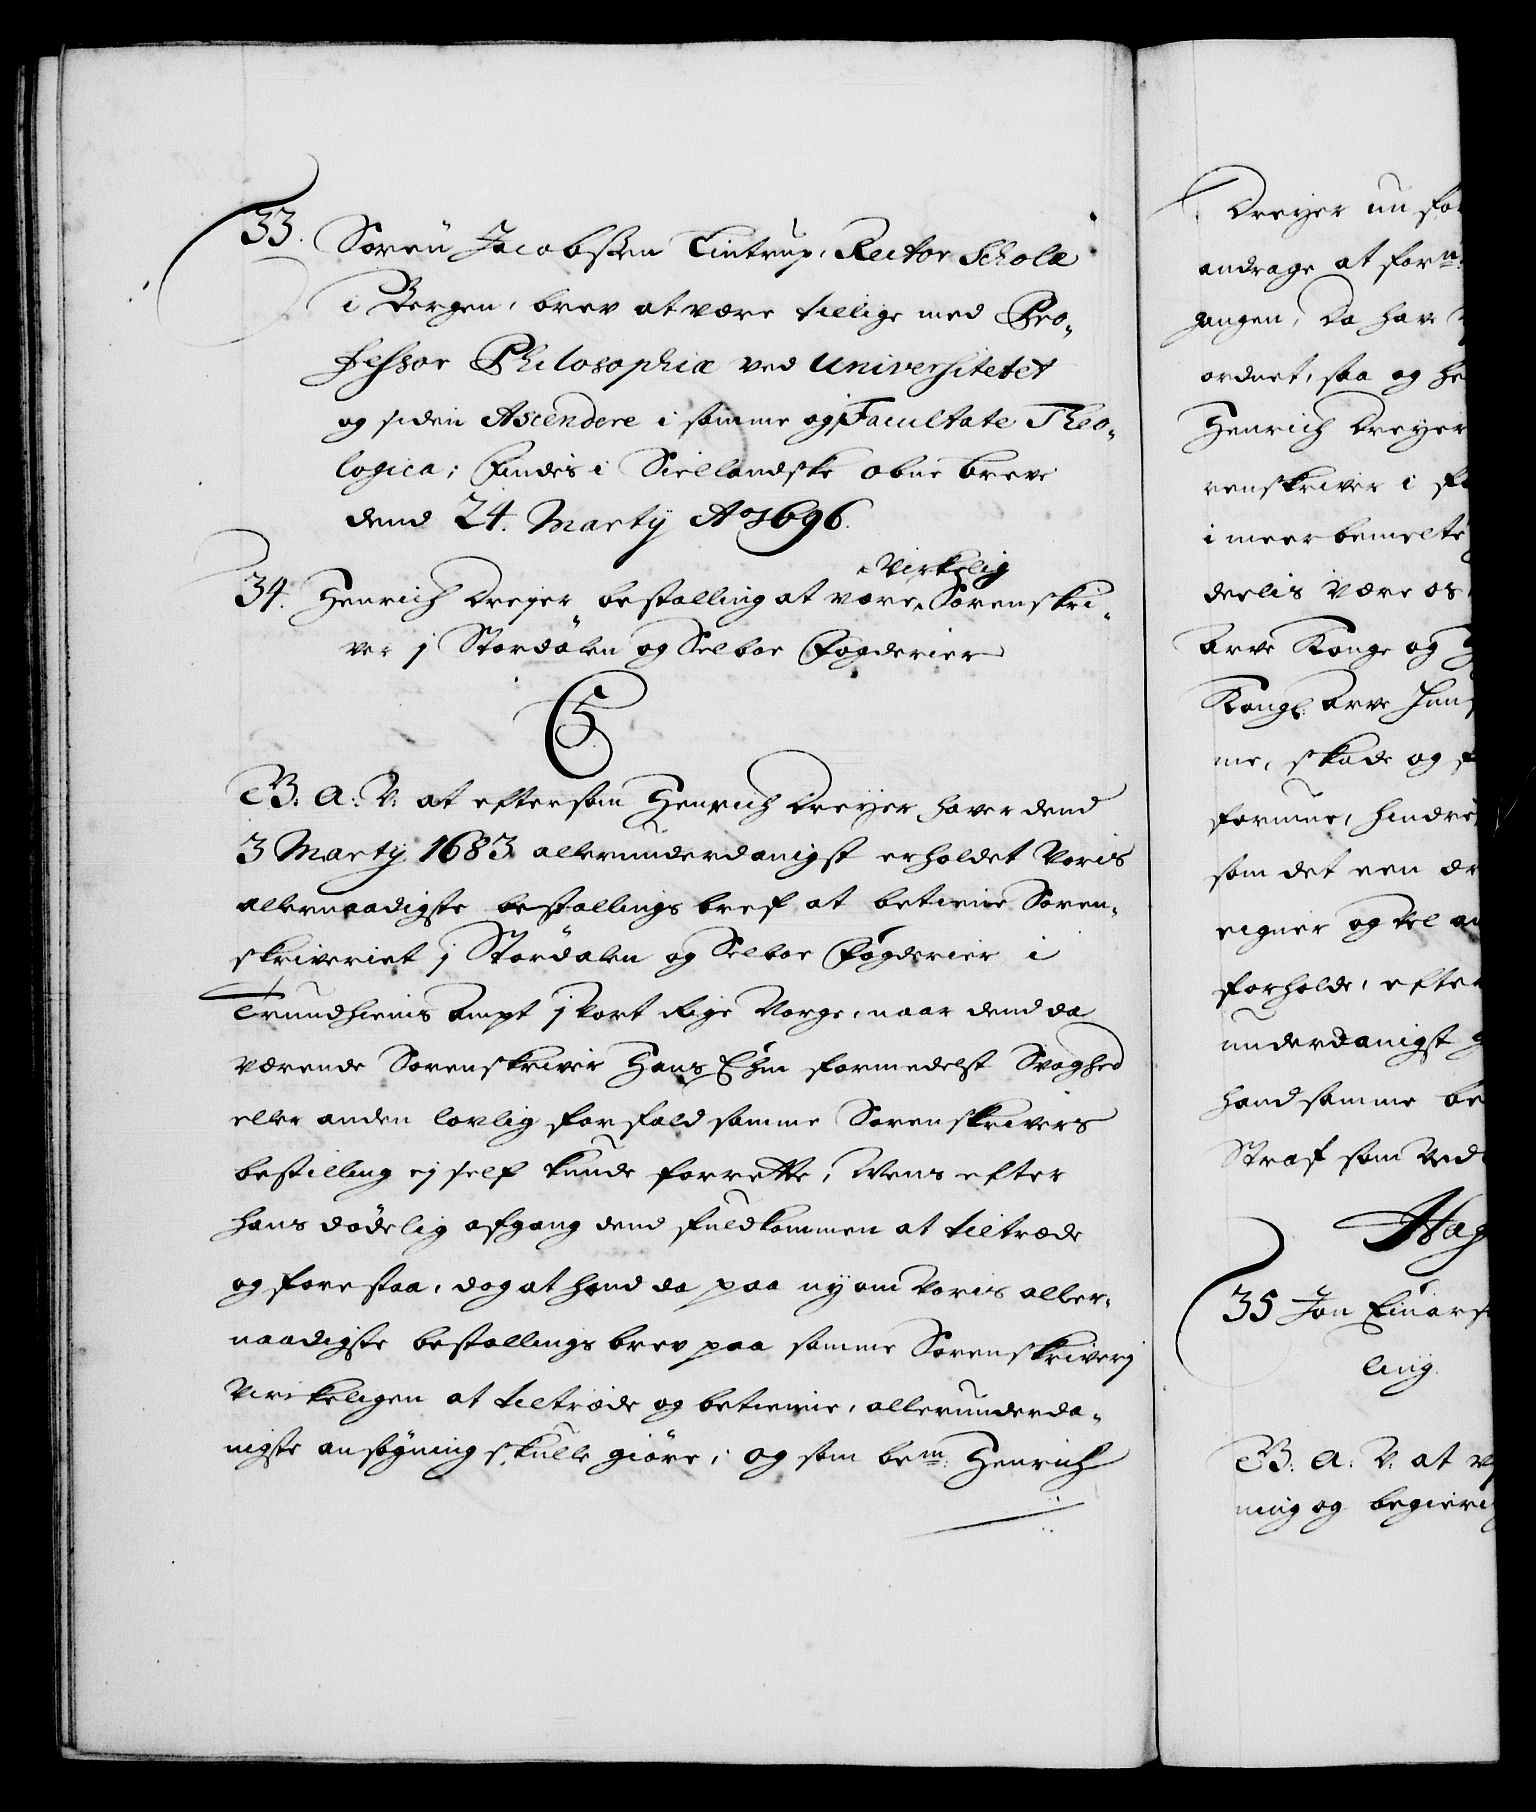 33. Søren Jacobssen Lintrup, Rector Scholæ
i Bergen, brev at være tillige med Pro-
fessor Philosophiæ ved Universitetet
og siden Ascendere i samme og Facultate Theo-
logica; findes i Siellandske obne breve
dend 24. Marty Ao 1696.
34. Henrich Dreyer bestalling at være Virkelig Sorenskri-
ver j Stordalen og Selboe Fogderier
C5
B. A: V: at eftersom Henrich Dreyer haver dend
3 Marty 1683 allerunderdanigst erholdet Voris
allernaadigste bestallings bref at betiene Soren-
skriveriet j Stordalen og Selboe Fogderier i
Trundhiems Ampt j Vort Rige Norge, naar dend da
værende Sorenskriver Hans Ehm formedelst Svaghed
eller anden lovlig forfald samme Sorenskrivers
bestilling ej self kunde forrette, Mens efter
hans dødelig afgang dend fuldkommen at tiltræde
og forestaa, dog at hand da paa ny om Voris aller-
naadigste bestallings brev paa samme Sorenskriverj
Virkeligen at tiltræde og betiene, allerunderda-
nigste ansøgning skulle giøre; og som bem: Henrich
Dreyer nu
andrage at forn:
gangen, Da have
ordnet, saa og
Henrich Dreyer
renskriver i
i meerbemelte
deelis være os
Arve Konge og
Kongl: Arve Huus
me, skade og
formue, hindre
som det een
eigner og vel
forholde, efter
underdanigst
hand samme
Straf som ved
Hag
35 Jon Einars
ling.
B: A: V: at
ning og begiering